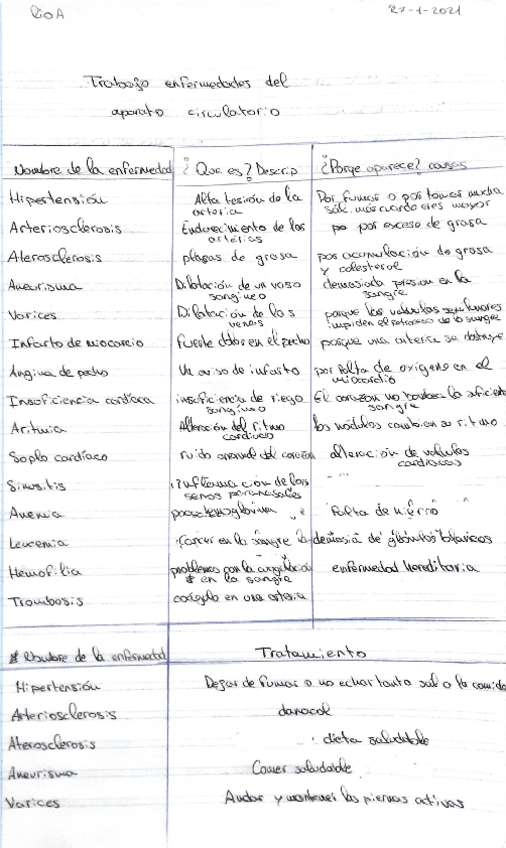 27-1-2021
Trabajo enfermedades del
aparato circulatorio
Nombre de la enfermedad ¿Que es? Descrip ¿Porqe aparece? causas
Hipertensión Alta tesión de la arteria Por fumar o por tomar mucha sal, mas cuando eres mayor
Arteriosclerosis Endurecimiento de las arterias por exceso de grasa
Aterosclerosis plasas de grasa por acumulación de grasa y colesterol
Aneurisma Dilatación de un vaso sangineo demasiada presion en la sangre
Varices Dilatación de las venas porque las valvulas impiden el retroceso de la sangre
Infarto de miocarcio fuerte dolor en el pecho porque una arteria se obstruye
Angina de pecho Un aviso de infarto por falta de oxigeno en el miocardio
Insoficiencia cardíaca insuficiencia de riego sanginuo El corazon no bombea la suficiente sangre
Aritmia Alteración del ritmo cardiaco los nodulos cambian su ritmo
Soplo cardíaco ruido anormal del corazón alteración de valvulas cardiacas
Sinositis Inflamación de los senos paranasales
Anemia poca hemoglobina Falta de hierro
Leucemia Cancer en la sangre demasia de globulos blancos
Hemofilia problemas con la coagulación en la sangre enfermedad hereditaria
Trombosis coagulo en una arteria
Nombre de la enfermedad Tratamiento
Hipertensión Dejar de fumar o no echar tanta sal a la comida
Arteriosclerosis danacol
Aterosclerosis dieta saludable
Aneurisma Comer saludable
Varices Andar y mantener las piernas activas